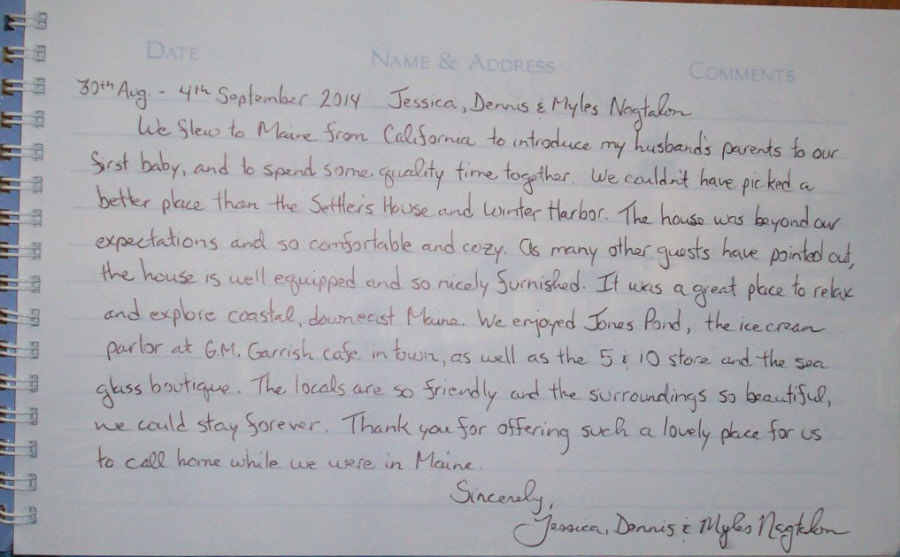 DATE NAME & ADDRESS COMMENTS
30th Aug. - 4th September 2014 Jessica, Dennis & Myles Nagtalon
We flew to Maine from California to introduce my husband's parents to our
first baby, and to spend some quality time together. We couldn't have picked a
better place than the Settler's House and Winter Harbor. The house was beyond our
expectations and so comfortable and cozy. As many other guests have pointed out,
the house is well equipped and so nicely furnished. It was a great place to relax
and explore coastal, downeast Maine. We enjoyed Jones Pond, the ice cream
parlor at G.M. Garrish cafe in town, as well as the 5 & 10 store and the sea
glass boutique. The locals are so friendly and the surroundings so beautiful,
we could stay forever. Thank you for offering such a lovely place for us
to call home while we were in Maine.
Sincerely,
Jessica, Dennis & Myles Nagtalon